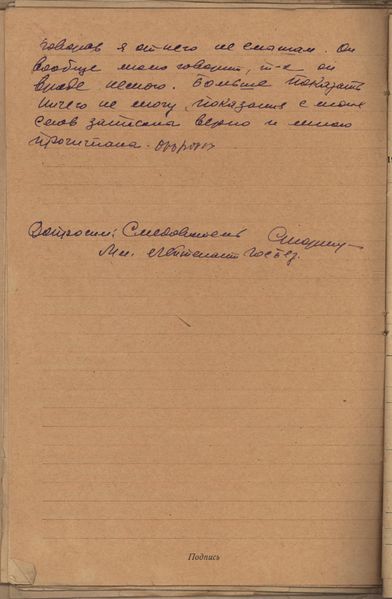 говоров я от него не слышал. Он
вообще мало говорит, т-к он
вроде немого. Больше показать
ничего не могу, показания с моих
слов записаны верно и мною
прочитаны.
Допросил: Следователь
Мл. лейтенант госбез.
Подпись